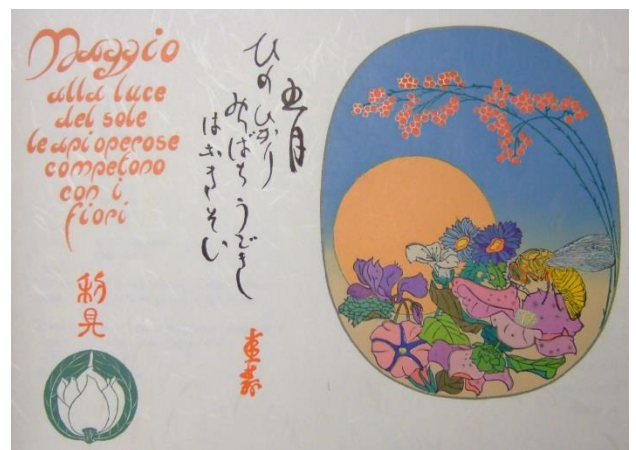 Maggio
alla luce
del sole
le api operose
competono
con i
fiori
五月
ひの ひかり
みつばち
はなきそい